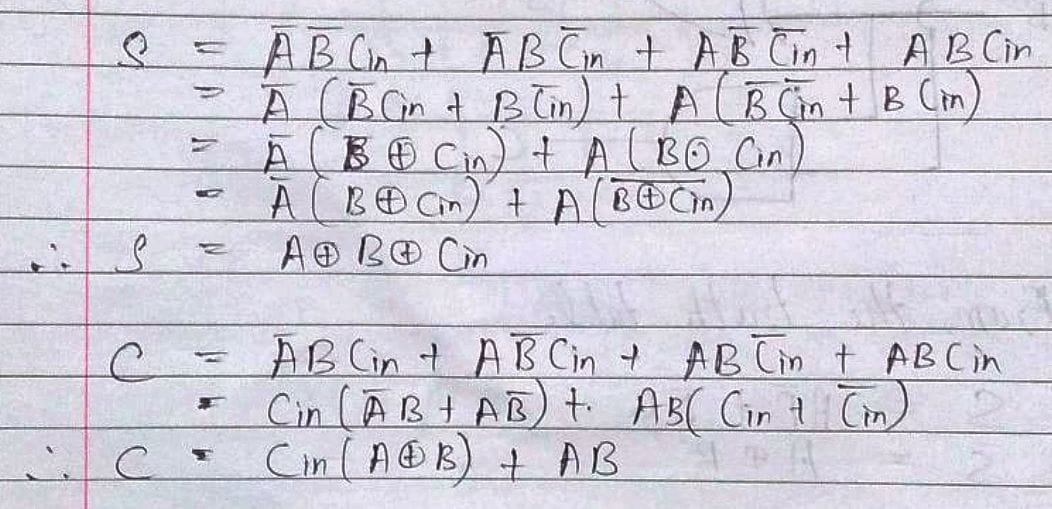 S = A̅ B̅ Cin + A̅ B C̅in + A B̅ C̅in + A B Cin
= A̅ ( B̅ Cin + B C̅in ) + A ( B̅ C̅in + B Cin )
= A̅ ( B ⊕ Cin ) + A ( B ⊙ Cin )
= A̅ ( B ⊕ Cin ) + A ( B̅ ⊕̅ C̅i̅n̅ )
∴ S = A ⊕ B ⊕ Cin
C = A̅ B Cin + A B̅ Cin + A B C̅in + A B Cin
= Cin ( A̅ B + A B̅ ) + AB ( Cin + C̅in )
∴ C = Cin ( A ⊕ B ) + AB